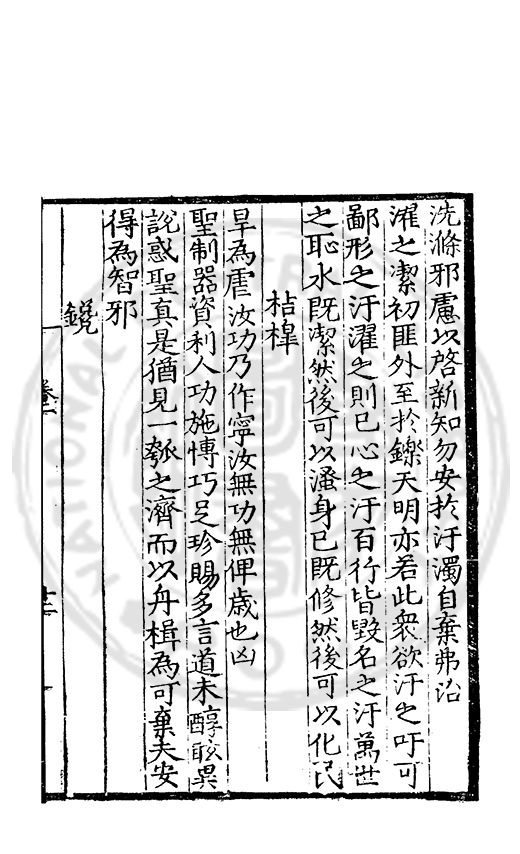 洗滌邪慮以啓新知勿安於汙濁自棄弗治
濯之潔初匪外至於鑠天明亦若此衆欲汙之吁可
鄙形之汙濯之則已心之汙百行皆毀名之汙萬世
之恥水既潔然後可以溞身已既修然後可以化民
桔槹
旱為虐汝功乃作寧汝無功無俾歲也凶
聖制器資利人功施愽巧足珍賜多言道未醇敢異
說惑聖真是猶見一瓠之濟而以舟楫為可棄夫安
得為智邪
鐃
卷
十三